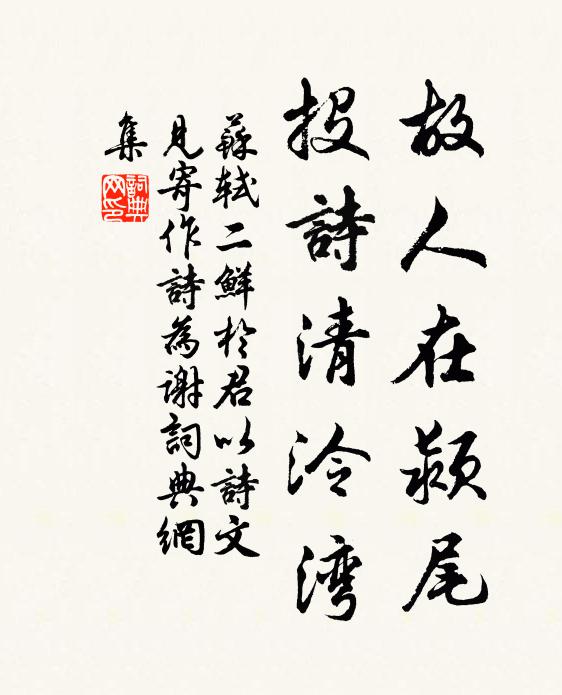 故人在颍尾
投詩清泠湾
蘇軾二鮮於君以詩文
見寄作詩為謝詞典網
集
詞典
网印